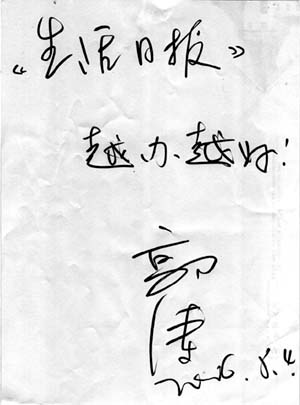 《生活日报》
越办越好!
郭
2006.8.4.